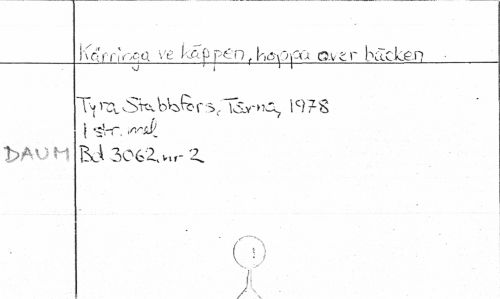 Kärringa ve käppen, hoppa over bäcken
Tyra Stabbfors, Tärna, 1978
1 str. mel
DAUM Bd 3062, nr 2